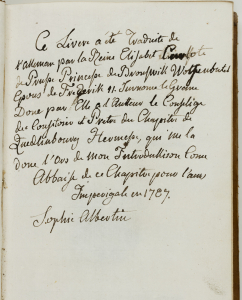 Ce Livere a été Traduite de
l'alleman par la Reine Elisabet
de Prusse Princesse de Bronswik Wolfenbutel
Epouse de Frederik II Surnome le Grand
Done par Elle a l'Auteur le
des Comptoire et Pretre du Chapitre de
Quedlinbourg Hermes, qui me la
done l'Ors de mon Introduktison Come
Abbaise de ce Chapitre pour l'ame
Imperigale en 1787.
Sophie Albertine